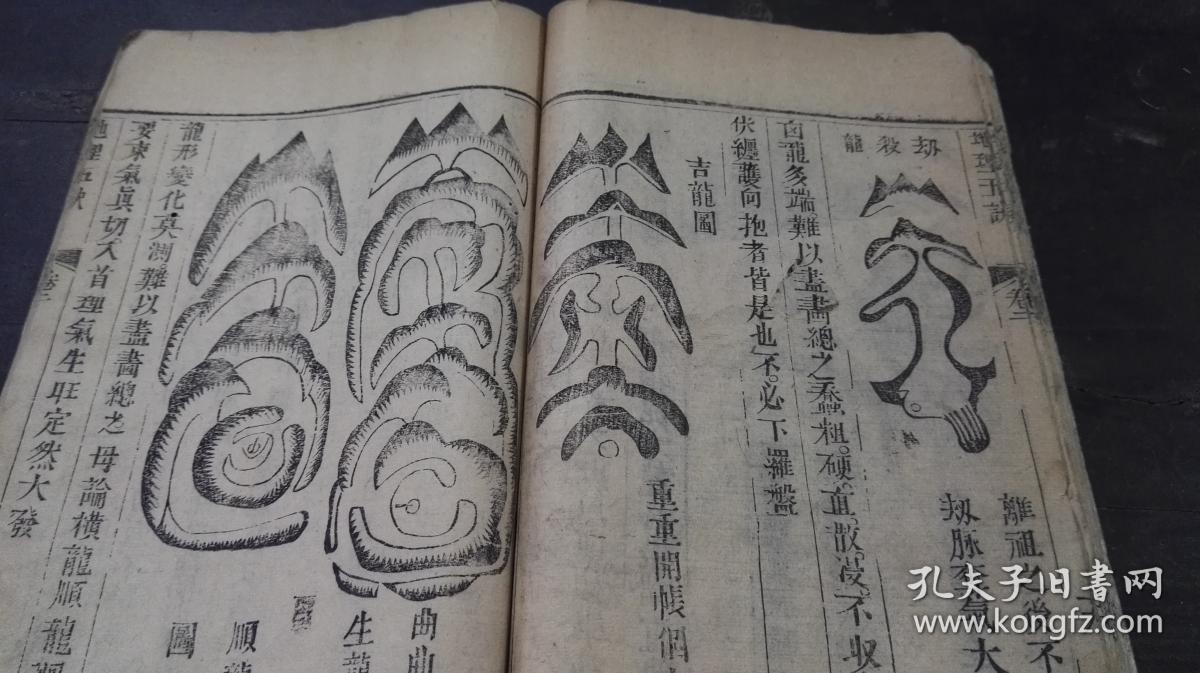 劫殺龍
離祖之後不
刼脉不
大
凶龍多端難以盡畵總之蠢粗硬直散漫不収
伏纒護向抱者皆是也不必下羅盤
吉龍圖
重重開帳個
曲曲
生龍
順龍
圖
龍形變化莫測難以盡畵總之毋論橫龍順龍
要束氣真切入首理氣生旺定然大發
地理五訣
卷二
孔夫子旧書网
www.kongfz.com